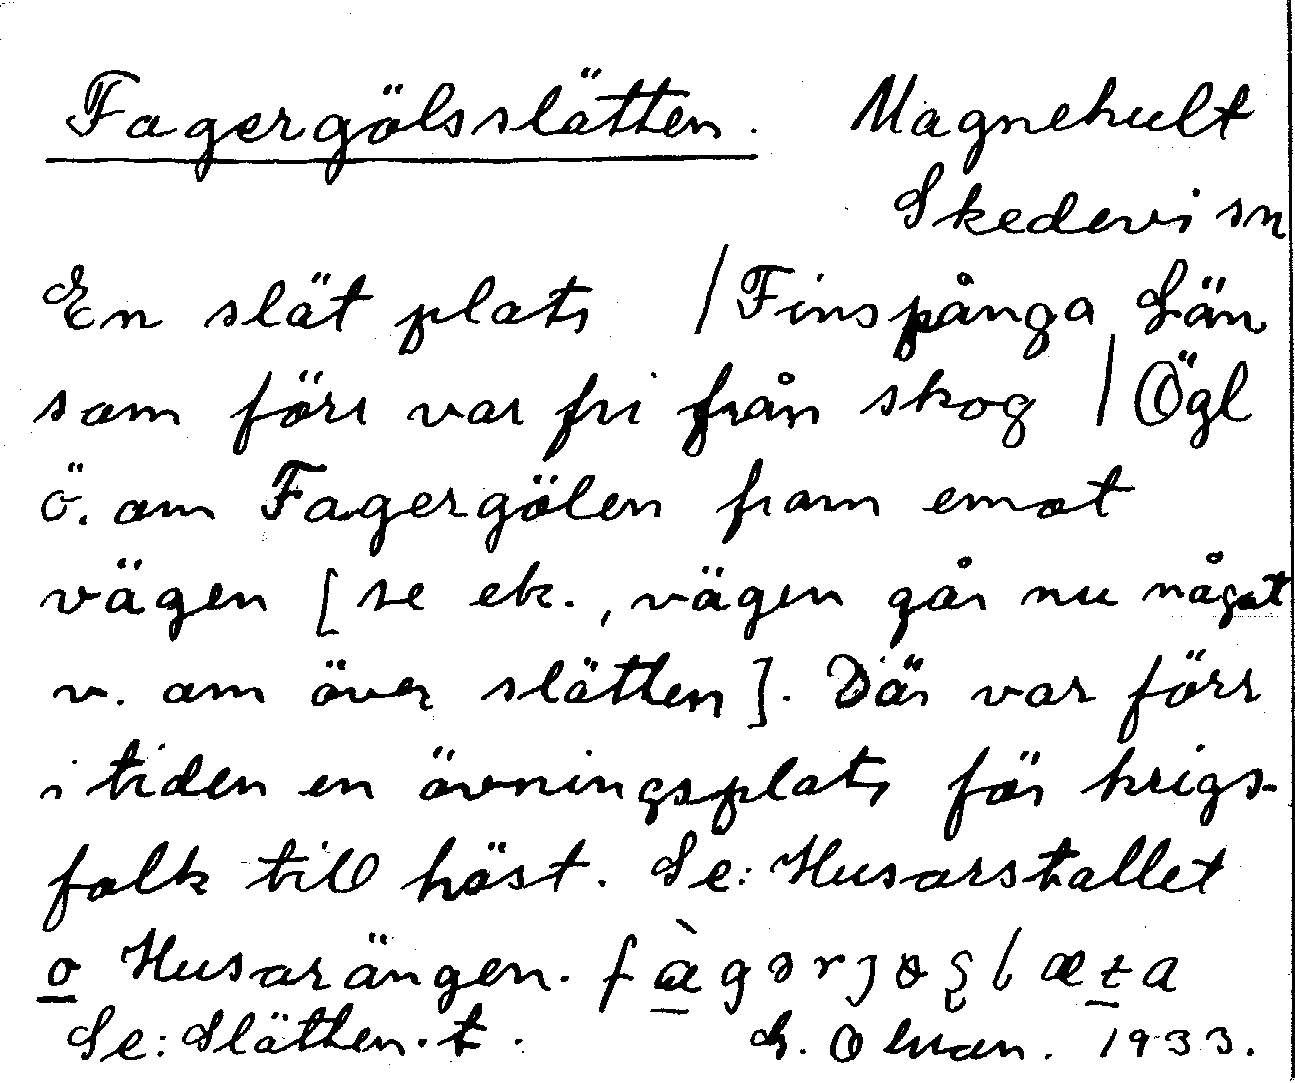 Fagergölsslätten. Magnehult
Skedevi sn
En slät plats / Finspånga Län
som förr var fri från skog / Ögl
ö. om Fagergölen fram emot
vägen [se ek., vägen går nu något
v. om över slätten]. Där var förr
i tiden en övningsplats för krigs-
folk till häst. Se: Husarstallet
o Husarängen.
Se: Slätten. t. 1933.